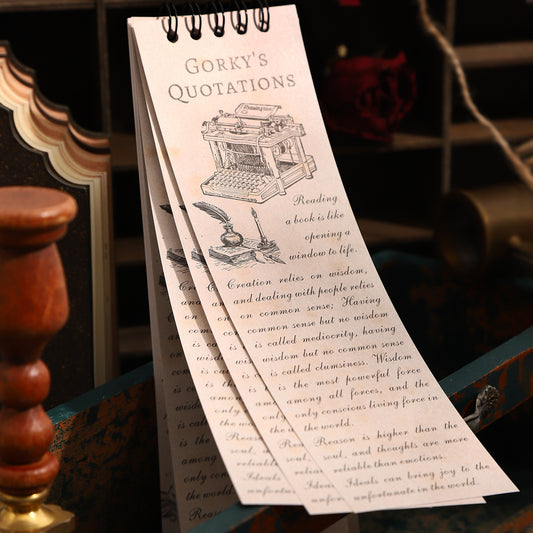 GORKY'S
QUOTATIONS
Remington
Reading
a book is like
opening a
window to life.
Creation relies on wisdom,
and dealing with people relies
on common sense; Having
common sense but no wisdom
is called mediocrity, having
wisdom but no common sense
is called clumsiness. Wisdom
is the most powerful force
among all forces, and the
only conscious living force in
the world.
Reason is higher than the
soul, and thoughts are more
reliable than emotions.
Ideals can bring joy to the
unfortunate in the world.